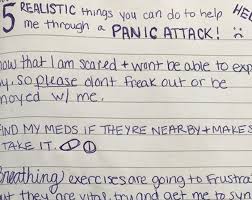 5 REALISTIC things you can do to help HEL
me through a PANIC ATTACK!
now that I am scared + wont be able to exp
y. so please dont freak out or be
noyed w/ me.
FIND MY MEDS IF THEYRE NEARBY + MAKES
TAKE IT.
Breathing exercises are going to frustra
but they are vital, try and get me to syn